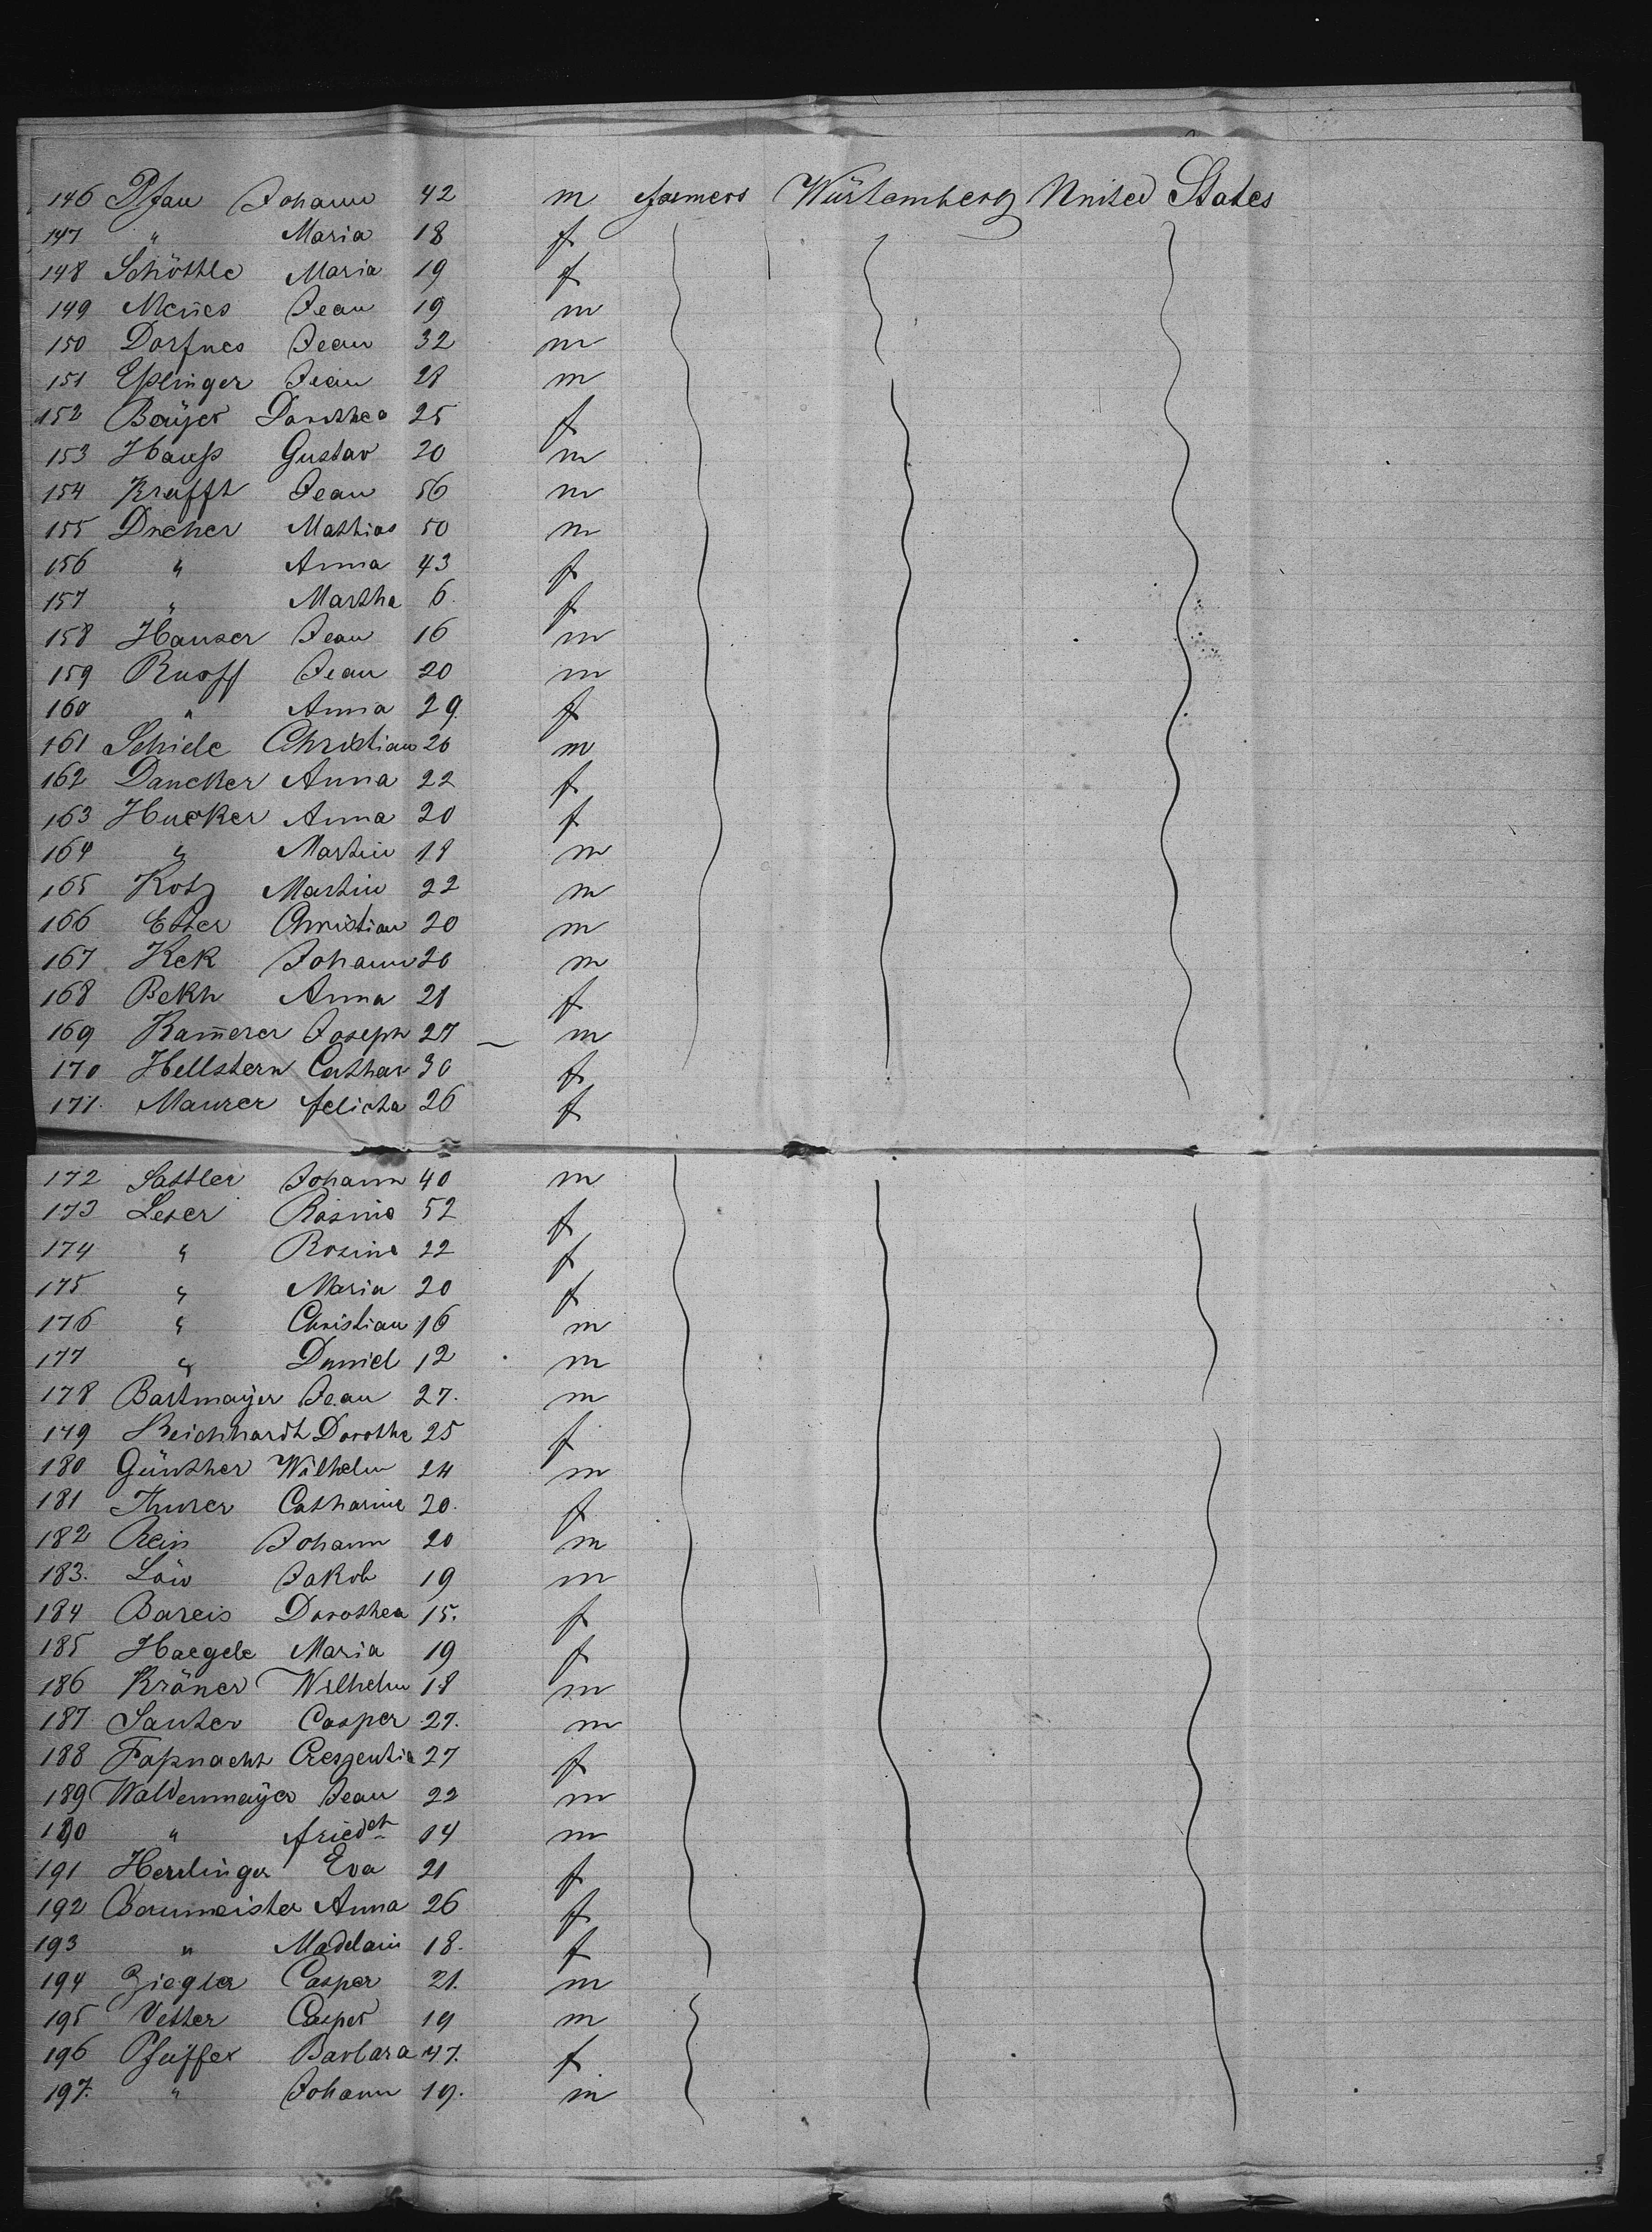 146 Pfau Johann 42 m farmers Würtemberg United States
147 " Maria 18 f
148 Schöttle Maria 19 f
149 Mem̄es Jean 19 m
150 Dorfnes Jean 32 m
151 Eßlinger Jean 28 m
152 Bäÿer Dorothea 25 f
153 Hauß Gustav 20 m
154 Krafft Jean 56 m
155 Dreher Mathias 50 m
156 " Anna 43 f
157 " Martha 6 f
158 Hauser Jean 16 m
159 Ruoff Jean 20 m
160 " Anna 29 f
161 Schiele Christian 26 m
162 Dancker Anna 22 f
163 Hucker Anna 20 f
164 " Martin 18 m
165 Kotz Martin 22 m
166 Etter Christian 20 m
167 Kek Johann 20 m
168 Bekh Anna 21 f
169 Kam̄erer Joseph 27 m
170 Hellstern Cathar 30 f
171. Maurer felicita 26 f
172 Sattler Johann 40 m
173 Leser Rosine 52 f
174 " Rosine 22 f
175 " Maria 20 f
176 " Christian 16 m
177 " Daniel 12 m
178 Bartmaÿer Jean 27. m
179 Reichhardt Dorothe 25 f
180 Günther Wilhelm 24 m
181 Thurer Catharine 20. f
182 Rein Johann 20 m
183. Löw Jakob 19 m
184 Bareis Dorothea 15. f
185 Haegele Maria 19 f
186 Kröner Wilhelm 18 m
187 Sauter Casper 27. m
188 Faßnacht Creszentia 27 f
189 Waldenmaÿer Jean 22 m
190 " friedch 14 m
191 Herrlinger Eva 21 f
192 Baumeister Anna 26 f
193 " Madelain 18. f
194 Ziegler Casper 21. m
195 Vetter Casper 19 m
196 Pfeiffer Barbara 47. f
197. " Johann 19. m